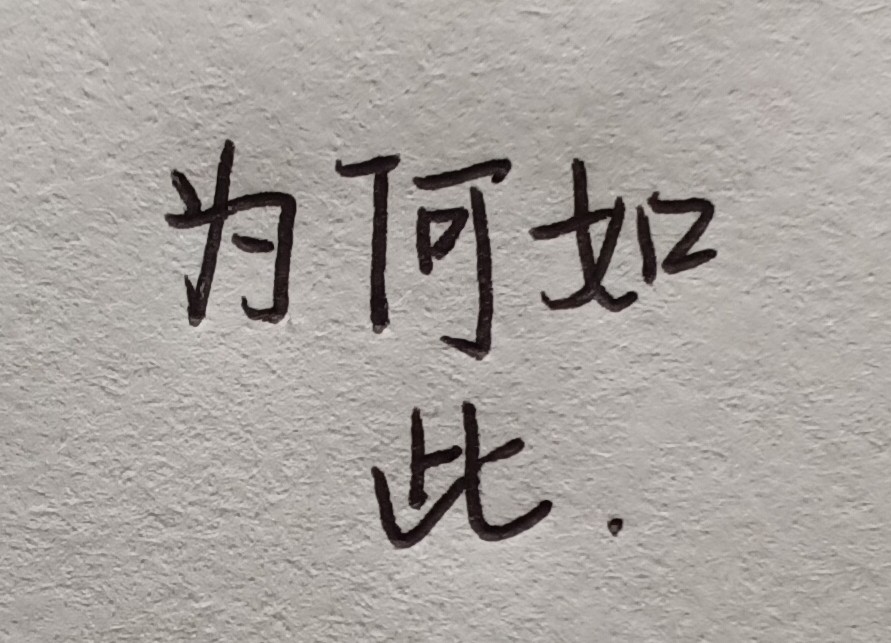 为何如
此.